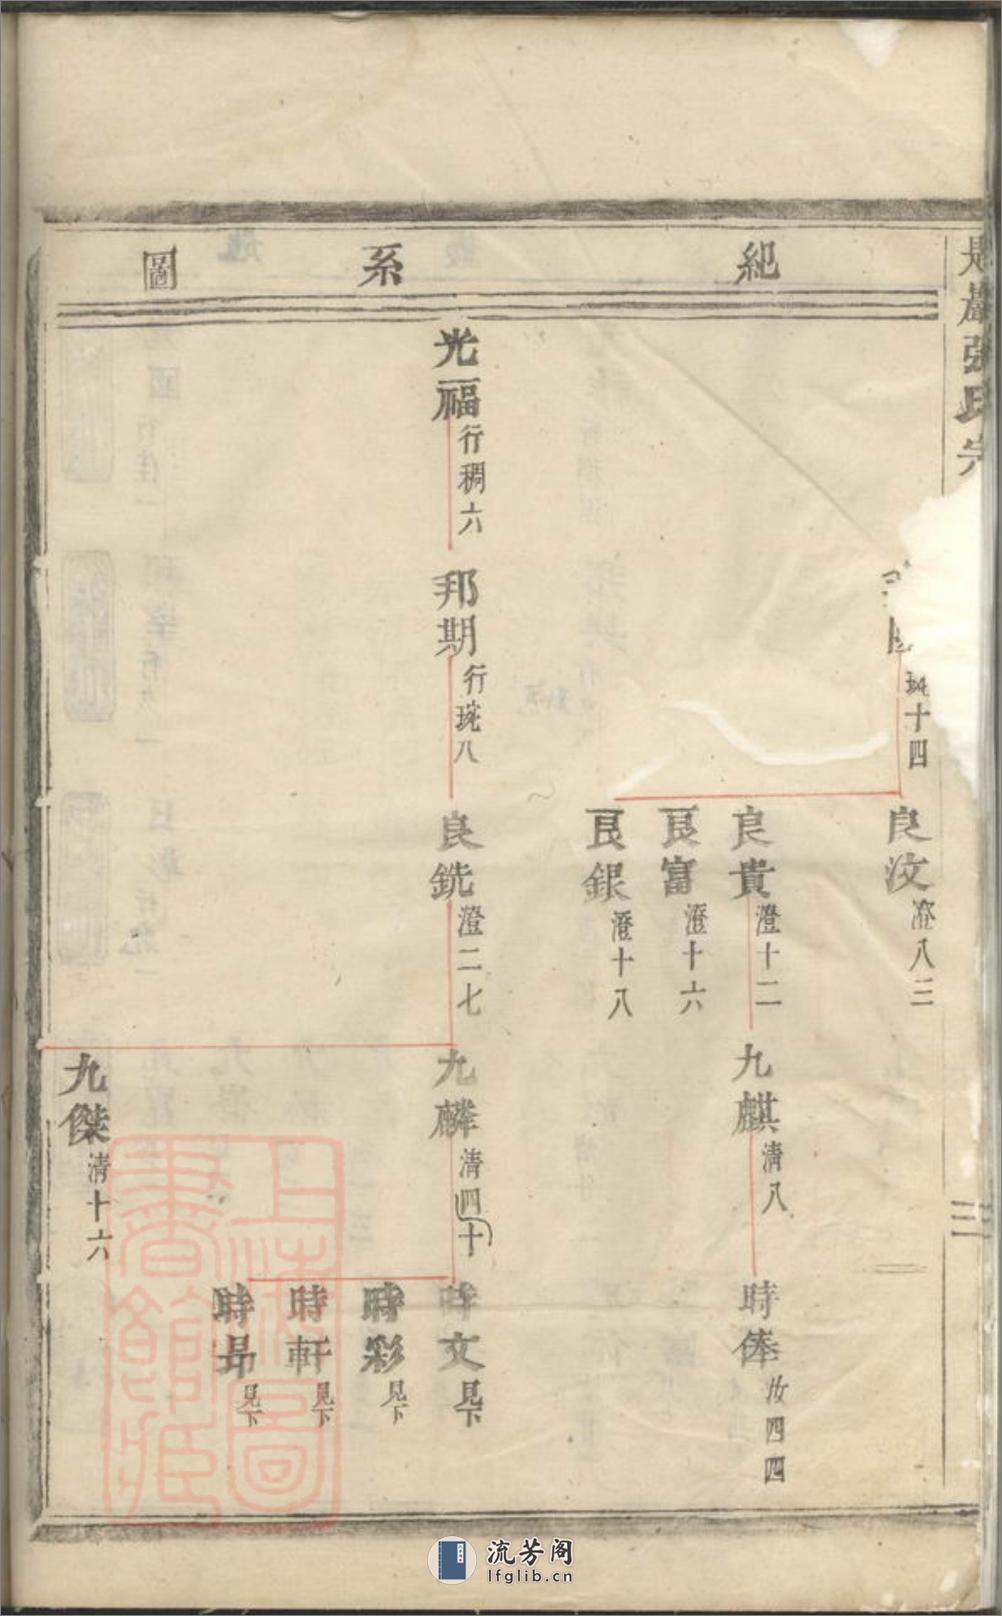 張氏宗
三
紀系圖
琥十四
良汶澄八三
良貴澄十二
良富澄十六
良銀澄十八
九麒清八
時俸汝四四
光福行稠六
邦期行琥八
良銑澄二七
九麟清四十
九傑清十六
時文見下
時彩見下
時軒見下
時昻見下
上海圖書館藏
流芳阁
lfglib.cn